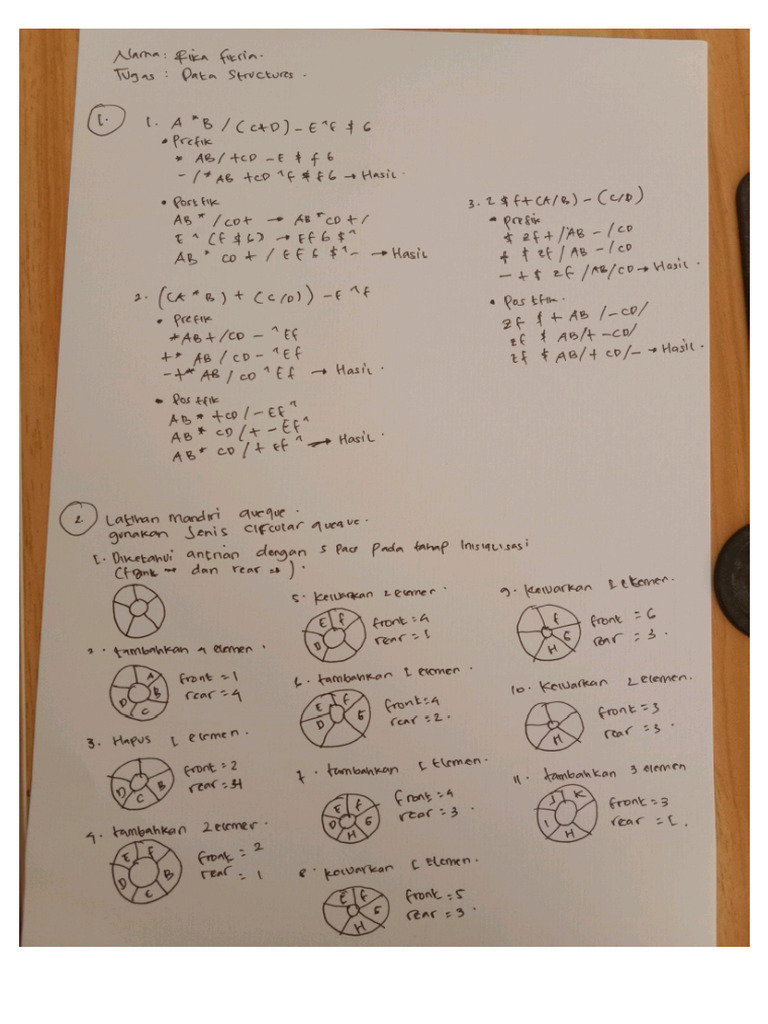 Nama : Fika Fikria.
Tugas : Data Structures.
1.
1. A * B / (C+D) - E ^ F $ G
• Prefik
* AB / +CD - E $ F G
- / * AB +CD ^ F $ F G → Hasil.
• Postfik
AB * / CD+ → AB * CD + /
E ^ (F $ G) → EF G $ ^
AB * CD + / EF G $ ^ - → Hasil
2. ((A * B) + (C/D)) - E ^ F
• Prefik
* AB + / CD - ^ EF
+ * AB / CD - ^ EF
- + * AB / CD ^ EF → Hasil.
• Postfik
AB * + CD / - EF ^
AB * CD / + - EF ^
AB * CD / + EF ^ → Hasil.
3. Z $ F + (A/B) - (C/D)
• Prefik
$ ZF + / AB - / CD
+ $ ZF / AB - / CD
- + $ ZF / AB / CD → Hasil.
• Postfik.
ZF $ + AB / - CD /
ZF $ AB / + - CD /
ZF $ AB / + CD / - → Hasil.
2
Latihan Mandiri queque.
gunakan Jenis circular queque.
1. Diketahui antrian dengan 5 pace pada tahap Inisialisasi
dan rear
2. tambahkan 4 elemen.
A B C D
front = 1
rear = 4
3. Hapus 1 elemen.
B C D
front = 2
rear = 4
4. tambahkan 2 elemen.
E F B C D
front = 2
rear = 1
5. Keluarkan 2 elemen.
E F D
front = 4
rear = 1
6. tambahkan 1 elemen.
E F G D
front = 4
rear = 2.
7. tambahkan 1 Elemen.
E F G H D
front = 4
rear = 3.
8. Keluarkan 1 Elemen.
E F G H
front = 5
rear = 3.
9. Keluarkan 1 elemen.
F G H
front = 6
rear = 3.
10. Keluarkan 2 elemen.
H
front = 3
rear = 3.
11. tambahkan 3 elemen
J K I H
front = 3
rear = 1.